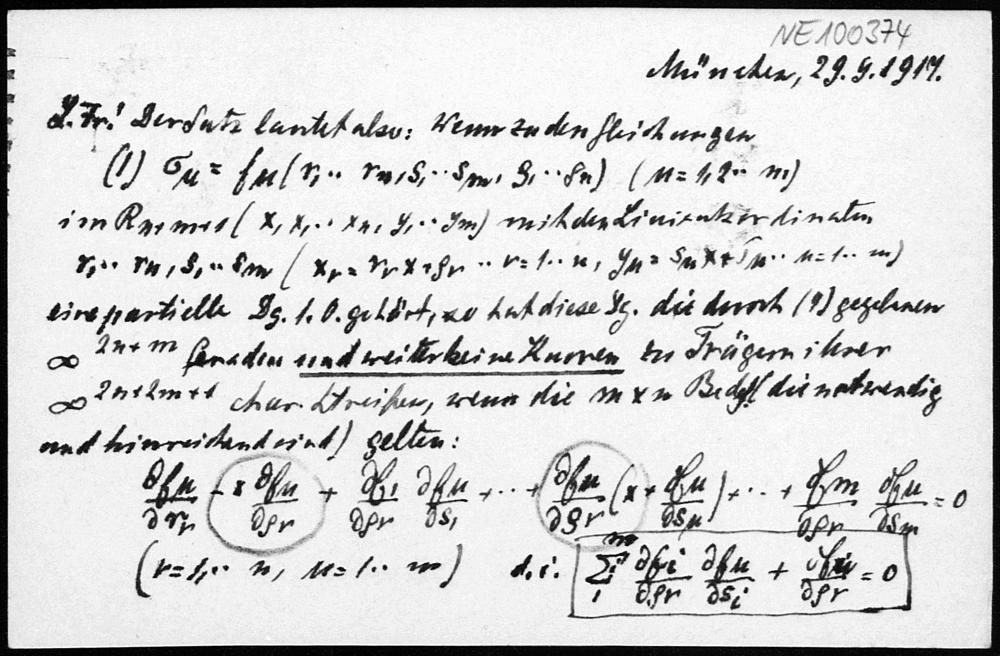 NE100374
München, 29.9.1917.
L. Fr.! Der Satz lautet also: Wenn zu den Gleichungen
(1) σμ = fμ(r₁‥ rₙ, s₁‥ sₘ, ρ₁‥ρₙ) (μ = 1, 2‥ m)
im Rₙ₊ₘ₊₁ (x, x₁‥ xₙ, y₁‥ yₘ) mit den Linienkoordinaten
r₁‥ rₙ, s₁‥ sₘ (xᵥ = rᵥ x + ρᵥ ‥ ν = 1‥ n, yμ = sμ x + σμ‥ μ = 1‥ m)
eine partielle Dg. 1. O. gehört, so hat diese Dg. die durch (1) gegebenen
∞²ⁿ⁺ᵐ Geraden und weiter keine Kurven zu Trägern ihrer
∞²ⁿ⁺²ᵐ⁺¹ char. Streifen, wenn die m x n Bedgg (die notwendig
und hinreichend sind) gelten:
∂fμ/∂rᵥ - x ∂fμ/∂ρᵥ + ∂f₁/∂ρᵥ ∂fμ/∂s₁ + ‥ + ∂fμ/∂ρᵥ (x + ∂fμ/∂sμ) + ‥ + ∂fₘ/∂ρᵥ ∂fμ/∂sₘ = 0
(ν = 1,‥ n, μ = 1‥ m) d. i. Σᵢ₌₁ᵐ ∂fᵢ/∂ρᵥ ∂fμ/∂sᵢ + ∂fμ/∂rᵥ = 0